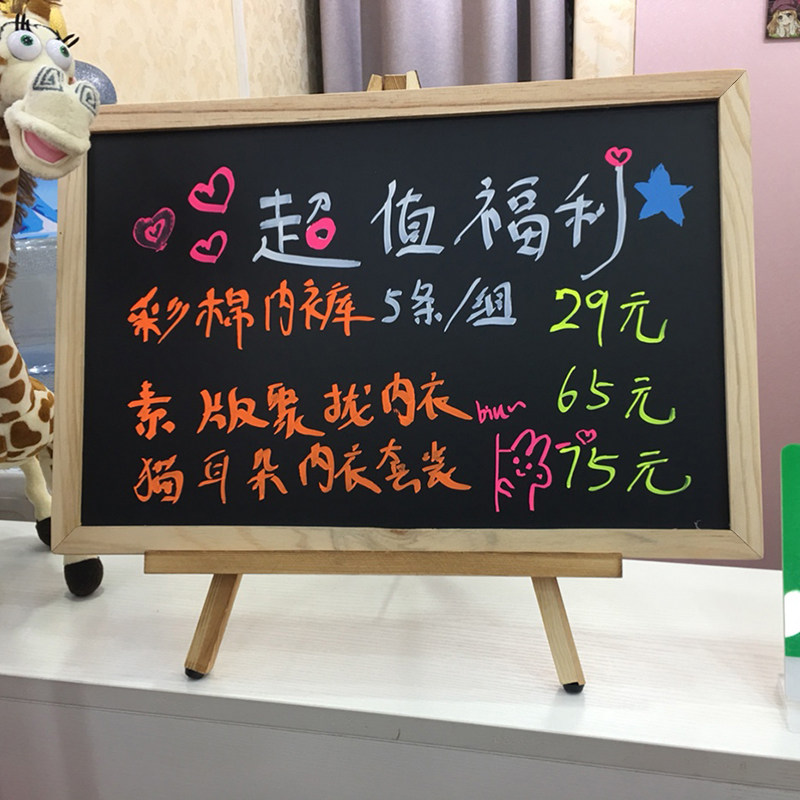 超值福利
彩棉内裤库5条/组 29元
素版聚拢内衣 biu~ 65元
猫耳朵内衣套装 75元